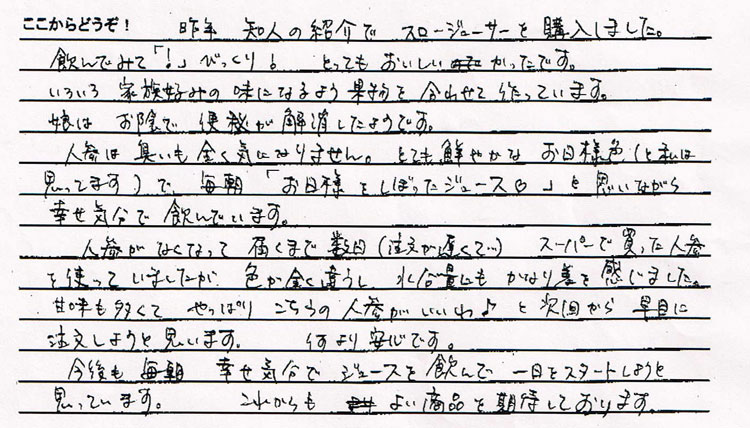 ここからどうぞ! 昨年 知人の紹介で スロージューサーを購入しました。
飲んでみて「!」びっくり! とってもおいしかったです。
いろいろ 家族好みの味になるよう 果物を合わせて作っています。
娘は お陰で 便秘が解消したようです。
人参は臭いも全く気になりません。とても鮮やかな お日様色(と私は
思ってます)で、毎朝「お日様をしぼったジュース♡」と思いながら
幸せ気分で飲んでいます。
人参がなくなって 届くまで数日(注文が遅くて…) スーパーで買った人参
を使っていましたが 色が全く違うし 水分量にも かなり差を感じました。
甘味も多くて やっぱり こちらの人参がいいわ♪ と次回から 早目に
注文しようと思います。 何より安心です。
今後も 毎朝 幸せ気分で ジュースを飲んで 一日をスタートしようと
思っています。 これからも よい商品を期待しております。